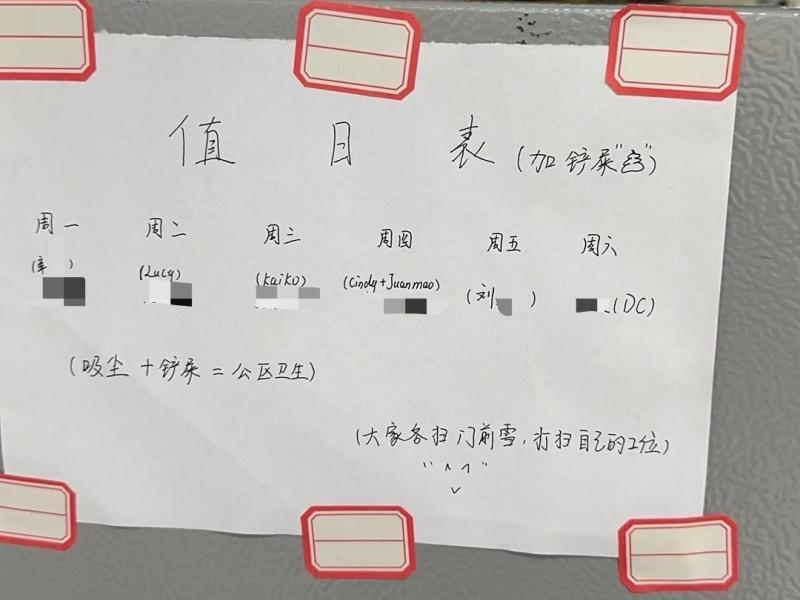 值 日 表 (加铲屎"官")
周一 周二 周三 周四 周五 周六
(Lucy) (KaiKo) (Cindy+Juanmao) (刘 ) (DC)
(吸尘+铲屎=公区卫生)
(大家各扫门前雪,打扫自己的工位)